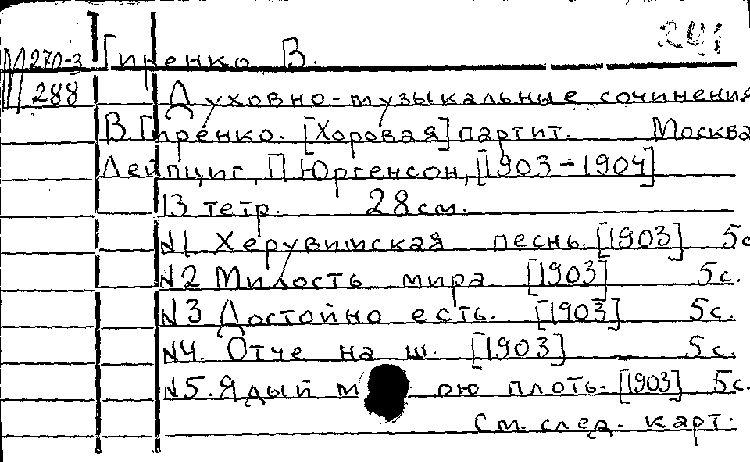 241
М 270-3 Гиренко В.
288 Духовно-музыкальные сочинения
В. Гиренко. [Хоровая] партит. Москва
Лейпциг, П. Юргенсон, [1903-1904]
13 тетр. 28 см.
N1 Херувимская песнь [1903] 5с
N2 Милость мира [1903] 5с.
N3 Достойно есть. [1903] 5с.
N4. Отче на ш. [1903] 5с.
N5. Ядый м ою плоть. [1903] 5с.
См. след. карт.